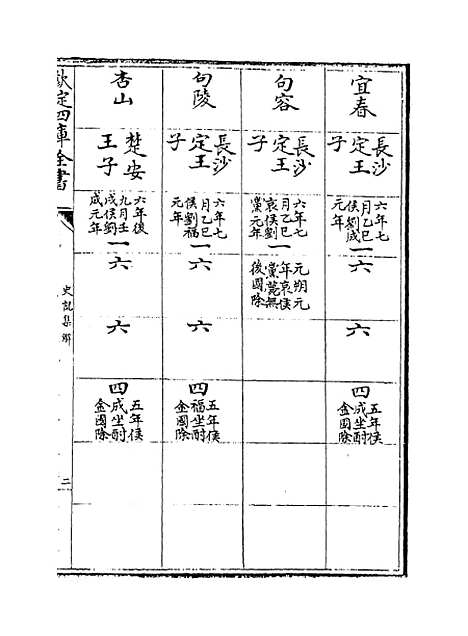 宜春
長沙
定王
子
六年七
月乙巳
侯劉成
元年
一
六
六
四
五年侯
成坐酎
金國除
句容
長沙
定王
子
六年七
月乙巳
哀侯劉
黨元年
一
元朔元
年哀侯
黨薨無
後國除
句陵
長沙
定王
子
六年七
月乙巳
侯劉福
元年
一
六
六
四
五年侯
福坐酎
金國除
杏山
楚安
王子
六年後
九月壬
戌侯劉
成元年
一
六
六
四
五年侯
成坐酎
金國除
欽定四庫全書
史記集解
二